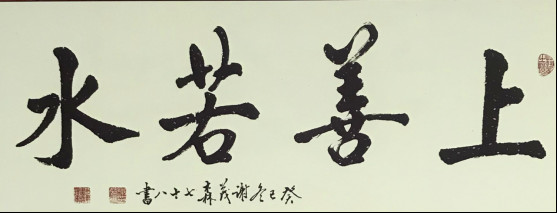 上善若水
癸巳冬谢茂森七十八書